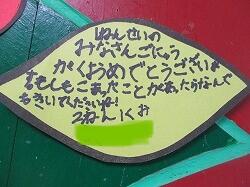 1ねんせいの
みなさんごにゅう
がくおめでとうございます
もしもこまったことがあったらなんで
もきいてくださいね!
2ねん1くみ